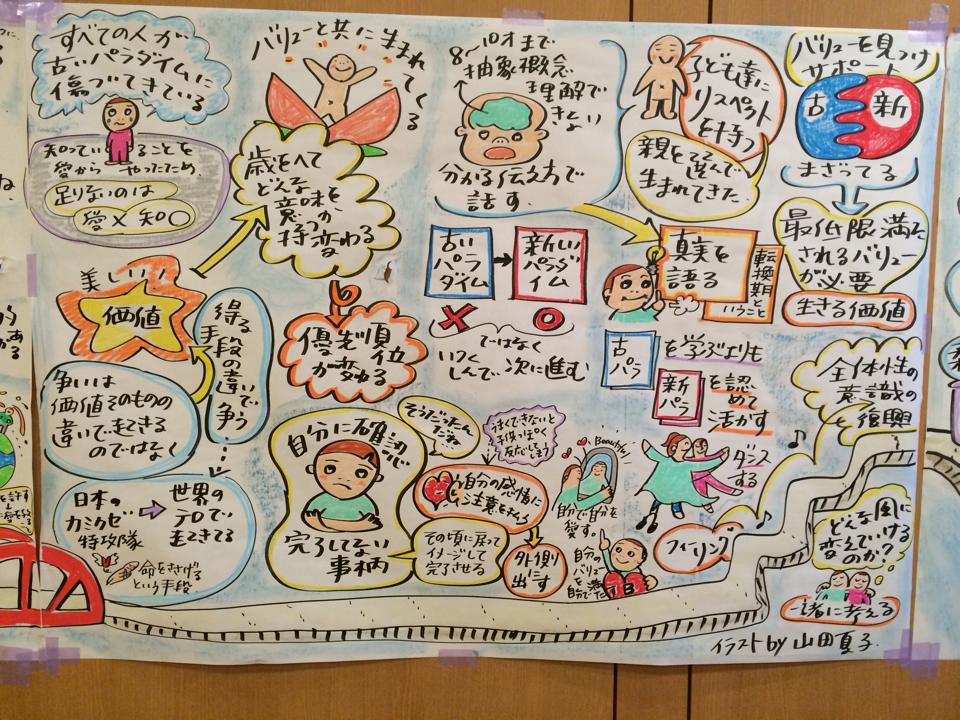 すべての人が
古いパラダイムに
傷ついてきている
知っていることを
愛から やったため
足りないのは
愛×知〇
バリューと共に生まれてくる
歳をへて
どんな
意味を
持つか
変わる
8〜10才まで
抽象概念
理解で
きない
分かる伝え方で
話す
子ども達に
リスペクト
を持つ
親を選んで
生まれてきた
バリューを見つけ
サポート
古 新
まざってる
最低限満た
されるバリュー
が必要
生きる価値
美しい!
価値
得る
手段の違いで
争う
優先順位
が変わる
古い
パラ
ダイム
新しい
パラダ
イム
ではなく
いつくしんで、次に進む
真実を
語る
転換期と
いうこと
古
パラ
を学ぶよりも
新
パラ
を認
めて
活かす
全体性の
意識の
復興
争いは
価値そのものの
違いで起きる
のではなく
日本の
カミカゼ
特攻隊
世界の
テロで
起きてる
命をささげる
という手段
自分に確認
完了してない
事柄
そうだったん
だね
うまくできないと
子供っぽく
反応しちゃう
自分の感情に
注意をむける
その頃に戻って
イメージして
完了させる
外側に
出す
Beautiful
自分で自分を
愛す
自分の
バリューを
自分で満たす
ダンス
する
フィーリング
どんな風に
変えていける
のか?
一緒に考える
イラスト by 山田夏子